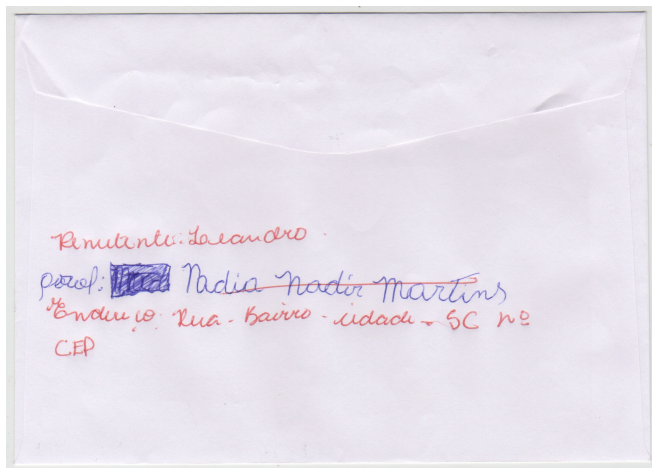 Remetente: Leandro.
prof: Nadia Nadir Martins
Endereço: Rua - Bairro - cidade - SC nº
CEP